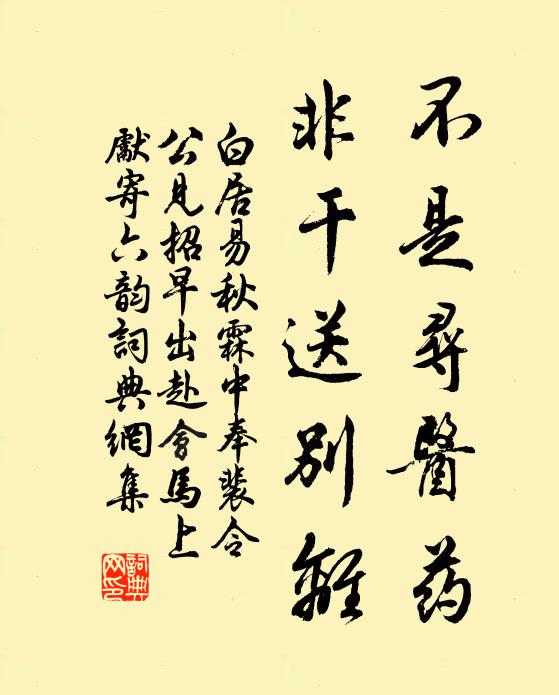 不是尋醫药
非干送别離
白居易秋霖中奉裴令
公見招早出赴會馬上
獻寄六韵詞典網集
詞典
网印